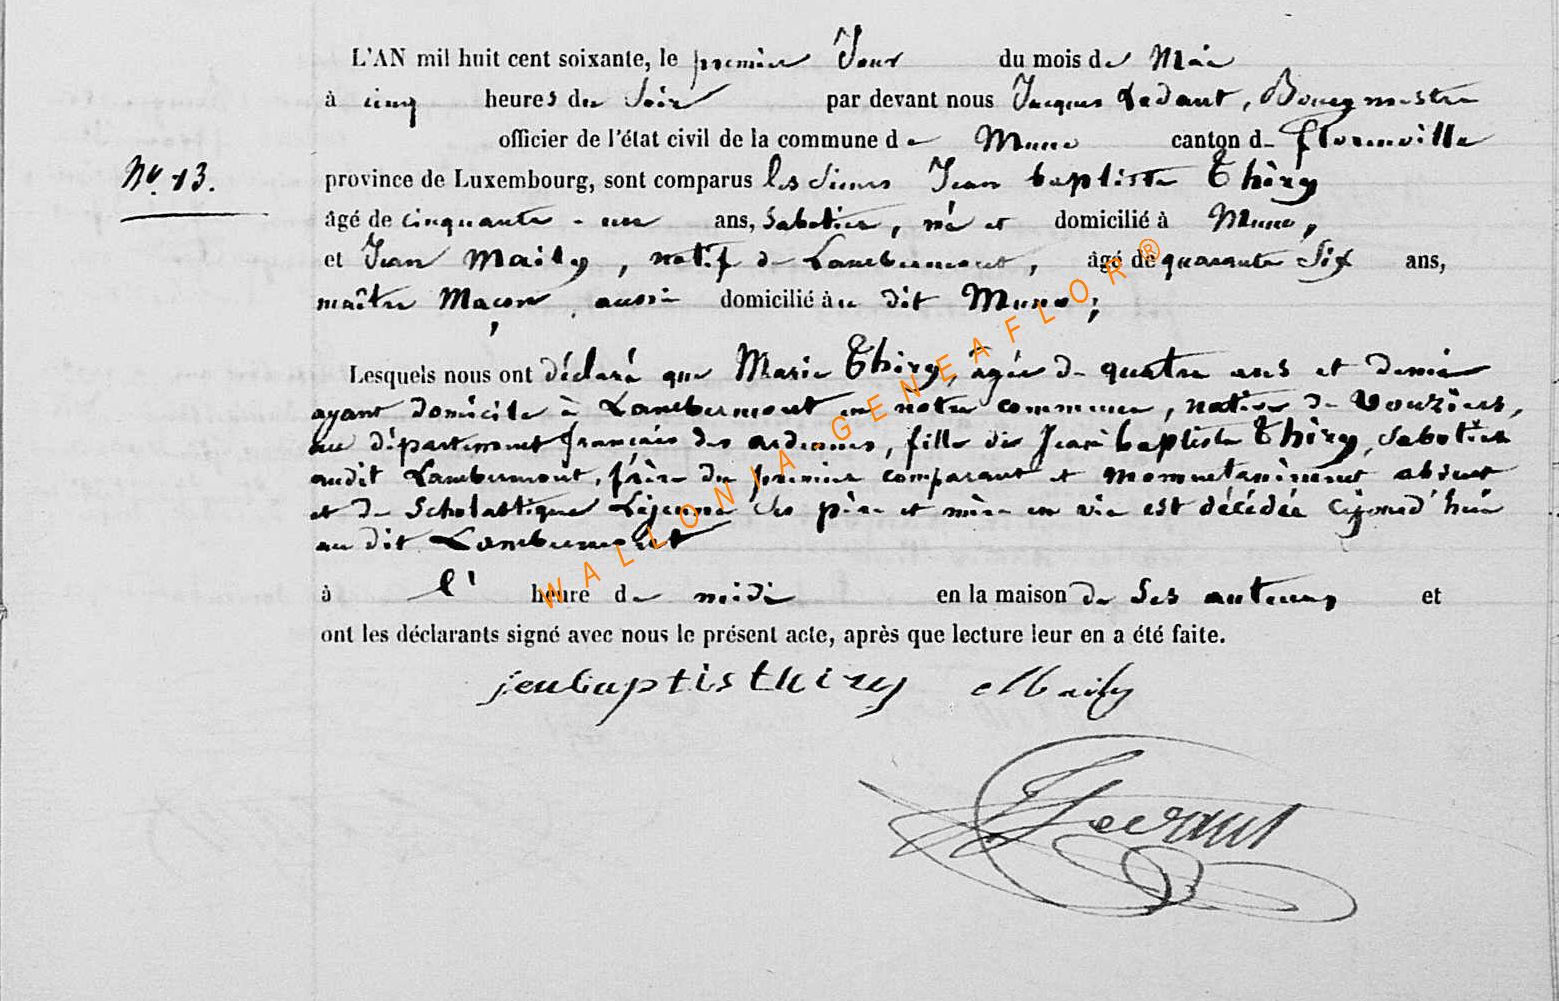 L'AN mil huit cent soixante, le premier Jour du mois de Mai
à cinq heures du Soir par devant nous Jacques Ledant, Bourgmestre
officier de l'état civil de la commune de Muno canton de florenville
N° 13. province de Luxembourg, sont comparus les Sieurs Jean baptiste Thiry
âgé de cinquante-un ans, Sabotier, né et domicilié à Muno,
et Jean Maily, natif de Lambermont, âgé de quarante Six ans,
maître Maçon, aussi domicilié au dit Muno;
Lesquels nous ont déclaré que Marie Thiry, âgée de quatre ans et demie
ayant domicile à Lambermont en notre commune, native de Vouziers,
au département français des ardennes, fille de Jean baptiste Thiry, Sabotier
audit Lambermont, frère du premier comparant et momentanément absent
et de Scholastique Lejeune ses père et mère en vie est décédée cejourd'hui
au dit Lambermont
à l' heure de midi en la maison de Ses auteurs et
ont les déclarants signé avec nous le présent acte, après que lecture leur en a été faite.
jeubaptis thiry Maily
Ledant
WALLONIA GENEAFLOR®